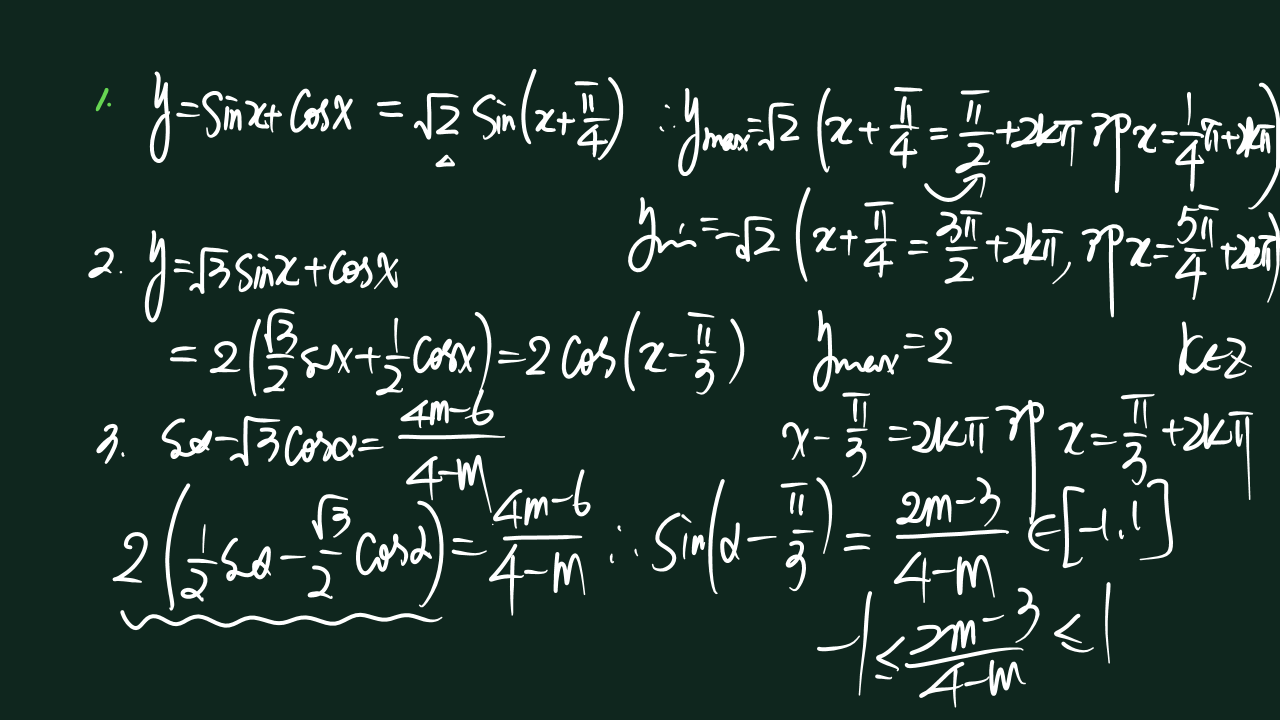 1. y=sinx+cosx =√2 sin(x+π/4) ∴ymax=√2 (x+π/4=π/2+2kπ 即x=1/4π+2kπ)
ymin=-√2 (x+π/4=3π/2+2kπ, 即x=5π/4+2kπ)
2. y=√3sinx+cosx
=2(√3/2 sinx+1/2 cosx)=2cos(x-π/3) ymax=2 k∈Z
x-π/3=2kπ 即 x=π/3+2kπ
3. sinα-√3cosα=(4m-6)/(4-m)
2(1/2 sinα-√3/2 cosα)=(4m-6)/(4-m) ∴ sin(α-π/3)=(2m-3)/(4-m) ∈[-1,1]
-1≤(2m-3)/(4-m)≤1